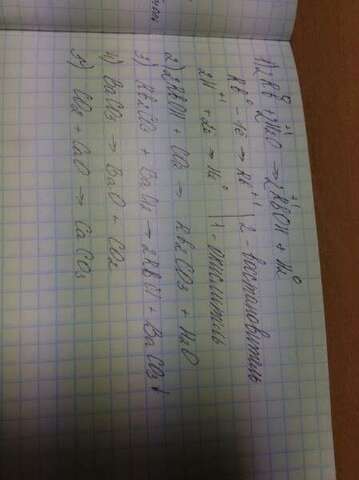 1) 2Rb⁰ + 2H⁺¹₂O → 2Rb⁺¹OH + H₂⁰
Rb⁰ - 1е → Rb⁺¹ | 2 - восстановитель
2H⁺¹ + 2е → H₂⁰ | 1 - окислитель
2) 2RbOH + CO₂ → Rb₂CO₃ + H₂O
3) Rb₂CO₃ + BaCl₂ → 2RbCl + BaCO₃↓
4) BaCO₃ → BaO + CO₂
5) CO₂ + CaO → CaCO₃